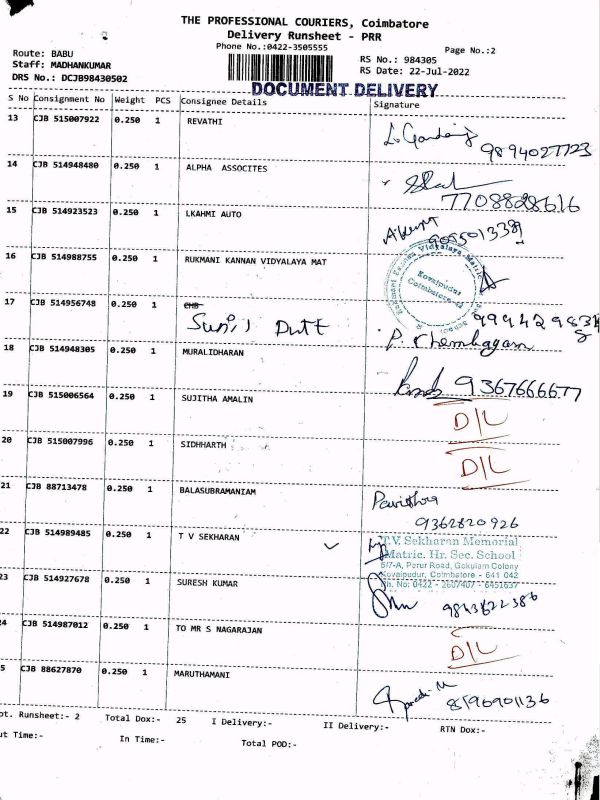 THE PROFESSIONAL COURIERS, Coimbatore
Delivery Runsheet - PRR
Phone No.:0422-3505555
Page No.:2
Route: BABU
Staff: MADHANKUMAR
DRS No.: DCJB98430502
RS No.: 984305
RS Date: 22-Jul-2022
DOCUMENT DELIVERY
S No Consignment No Weight PCS Consignee Details Signature
13 CJB 515007922 0.250 1 REVATHI
9894027723
14 CJB 514948480 0.250 1 ALPHA ASSOCITES
7708828616
15 CJB 514923523 0.250 1 LKAHMI AUTO
16 CJB 514988755 0.250 1 RUKMANI KANNAN VIDYALAYA MAT
Kovaipudur
Coimbatore
17 CJB 514956748 0.250 1 CHB
Sunil Dutt
P. Chembagam
18 CJB 514948305 0.250 1 MURALIDHARAN
9367666677
19 CJB 515006564 0.250 1 SUJITHA AMALIN
D/L
20 CJB 515007996 0.250 1 SIDHHARTH
D/L
21 CJB 88713478 0.250 1 BALASUBRAMANIAM
Pavithra
9362820926
22 CJB 514989485 0.250 1 T V SEKHARAN
T.V. Sekharan Memorial
Matric. Hr. Sec. School
5/7-A, Perur Road, Gokulam Colony
Kovaipudur, Coimbatore - 641 042
Ph. No: 0422 - 2607407 - 6451637
23 CJB 514927678 0.250 1 SURESH KUMAR
9843622386
24 CJB 514987012 0.250 1 TO MR S NAGARAJAN
D/L
5 CJB 88627870 0.250 1 MARUTHAMANI
8596901136
ot. Runsheet:- 2 Total Dox:- 25 I Delivery:- II Delivery:- RTN Dox:-
ut Time:- In Time:- Total POD:-